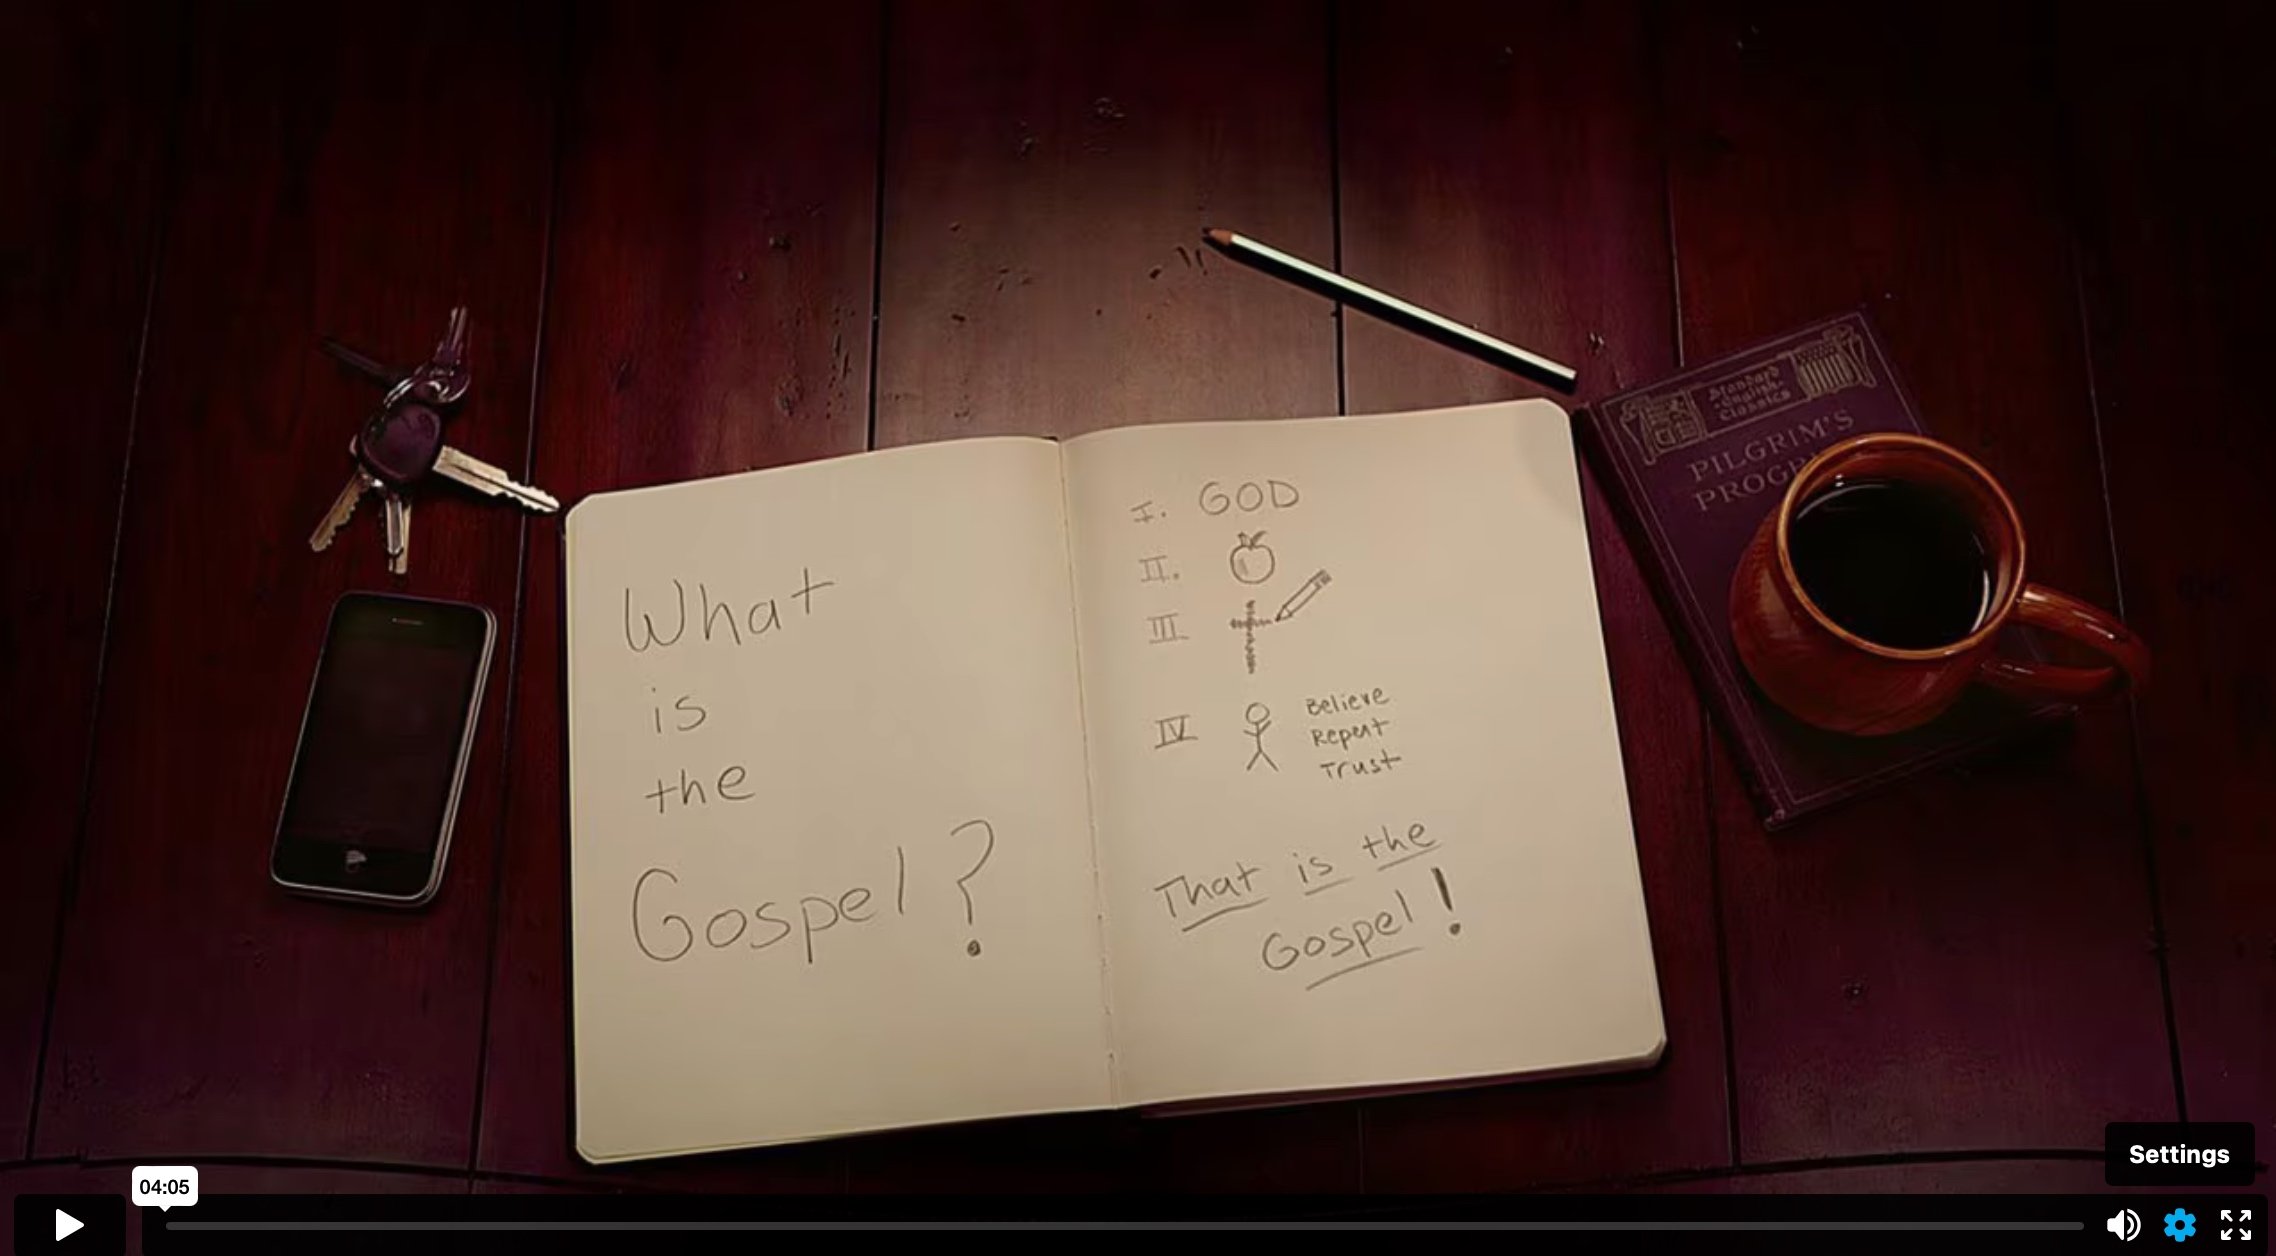 What
is
the
Gospel?
I. GOD
II.
III
IV
Believe
Repent
Trust
That is the
Gospel!
Standard
English
Classics
PILGRIM'S
Settings
04:05